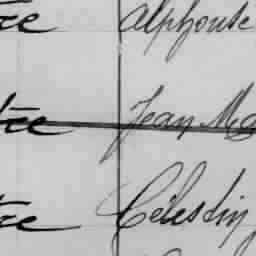 tre Alphonse
tre Jean Ma
tre Célestin